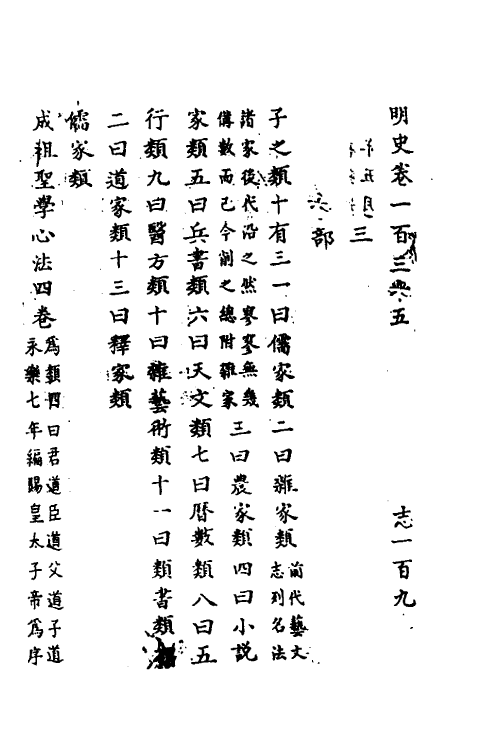 明史卷一百三五 志一百九
三
部
子之類十有三一曰儒家類二曰雜家類前代藝文志列名法
諸家後代沿之然寥寥無幾備數而已今削之總附雜家三曰農家類四曰小説
家類五曰兵書類六曰天文類七曰暦數類八曰五
行類九曰醫方類十曰雜藝術類十一曰類書類
二曰道家類十三曰釋家類
儒家類
成祖聖學心法四卷為類四曰君道臣道父道子道永樂七年編賜皇太子帝爲序